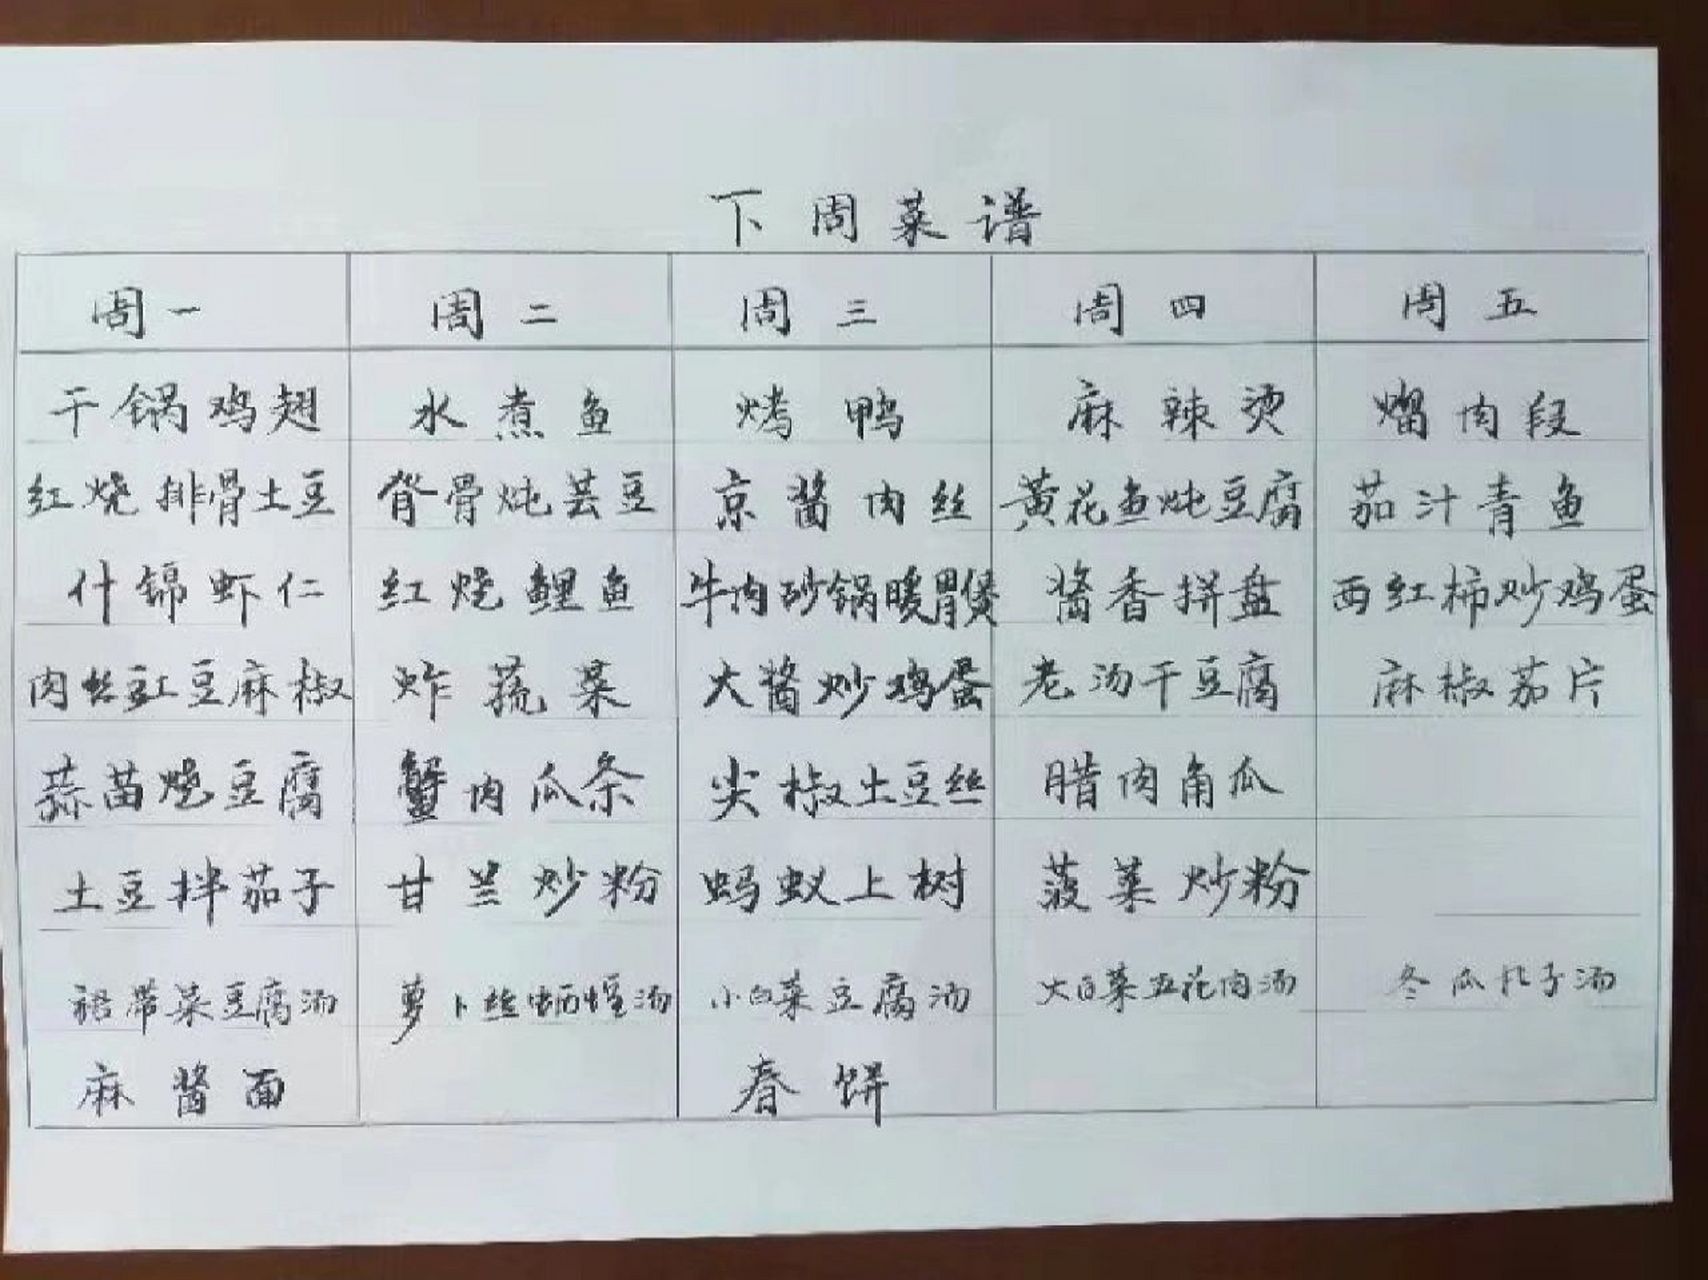 下周菜谱
周一 周二 周三 周四 周五
干锅鸡翅 水煮鱼 烤鸭 麻辣烫 熘肉段
红烧排骨土豆 脊骨炖芸豆 京酱肉丝 黄花鱼炖豆腐 茄汁青鱼
什锦虾仁 红烧鲤鱼 牛肉砂锅暖胃煲 酱香拼盘 西红柿炒鸡蛋
肉丝豇豆麻椒 炸蔬菜 大酱炒鸡蛋 老汤干豆腐 麻椒茄片
蒜苗烧豆腐 蟹肉瓜条 尖椒土豆丝 腊肉角瓜
土豆拌茄子 甘兰炒粉 蚂蚁上树 菠菜炒粉
裙带菜豆腐汤 萝卜丝蛎蝗汤 小白菜豆腐汤 大白菜五花肉汤 冬瓜丸子汤
麻酱面 春饼